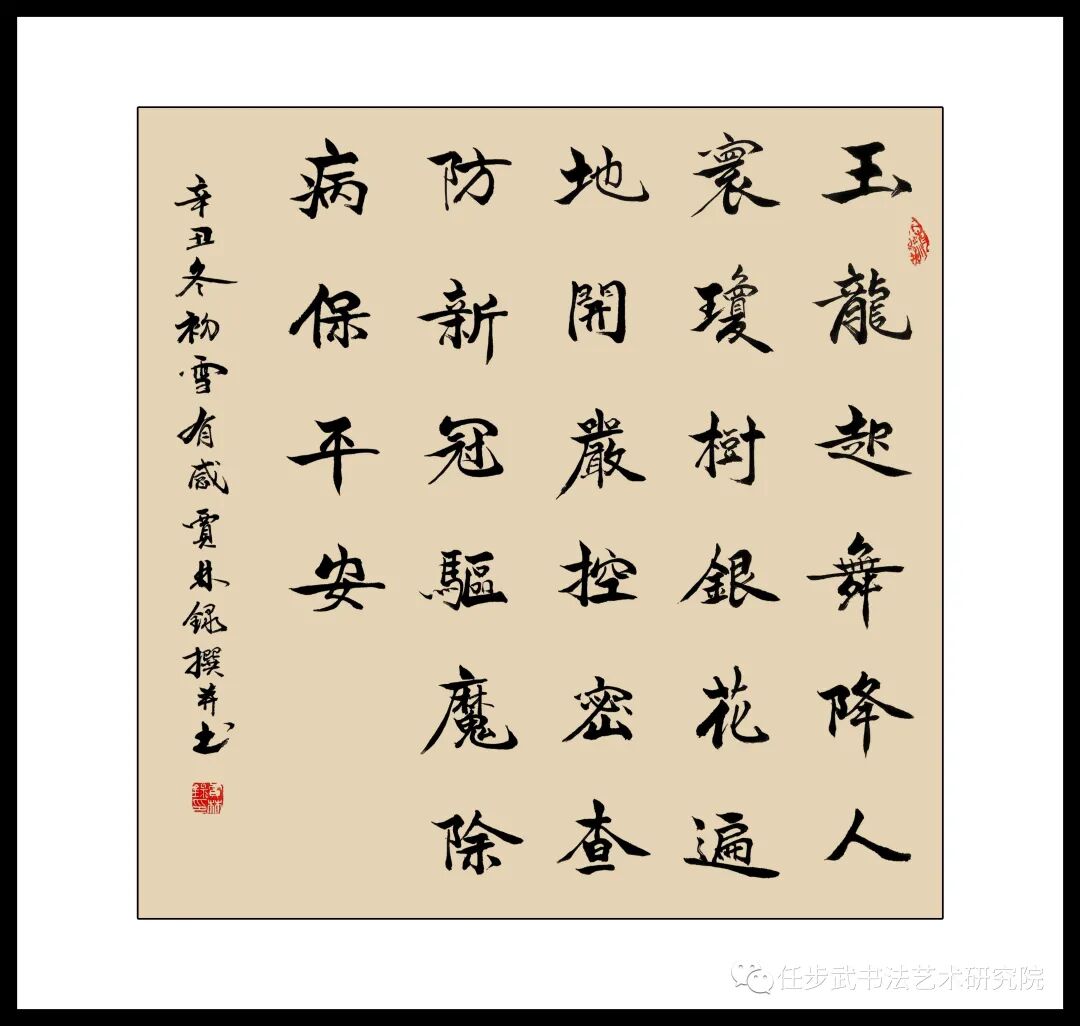 玉龍起舞降人
寰瓊樹銀花遍
地開嚴控密查
防新冠驅魔除
病保平安
辛丑冬初雪有感賈林録撰并书
任步武书法艺术研究院